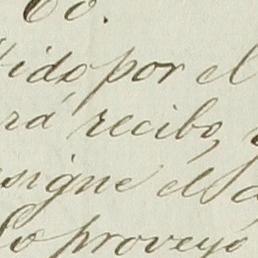 Co.
ido, por el
rá recibo,
signe el
lo proveyó